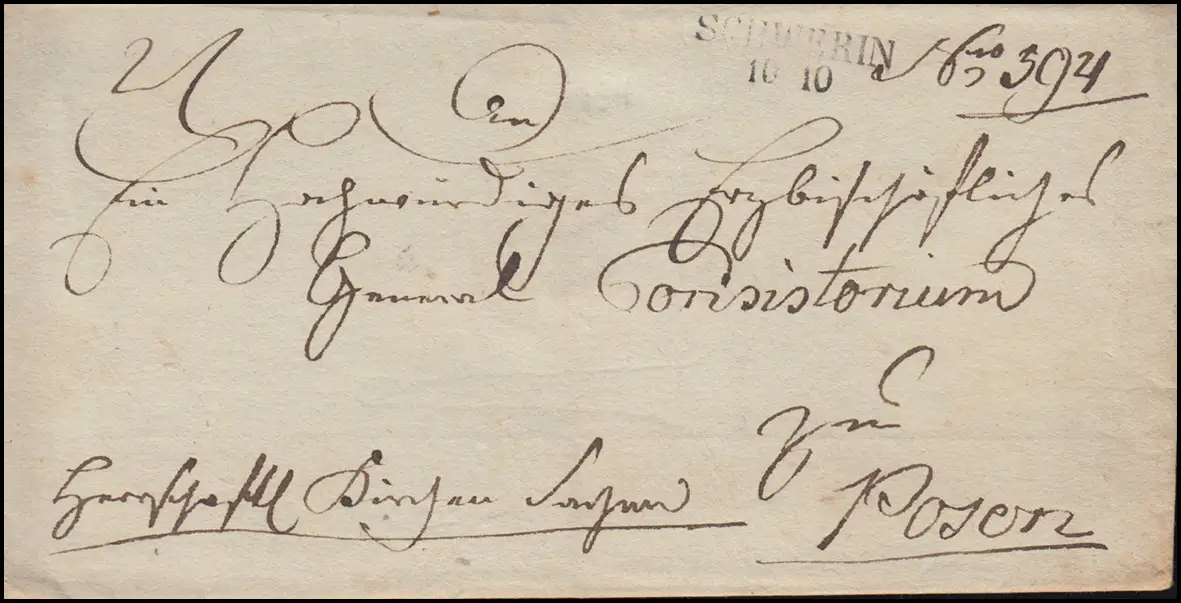 SCHWERIN
10 10
Nro 394
An
Ein Hochwürdiges Erzbischöfliches
General Consistorium
zu
Posen
Herrschaftl Kirchen Sachen